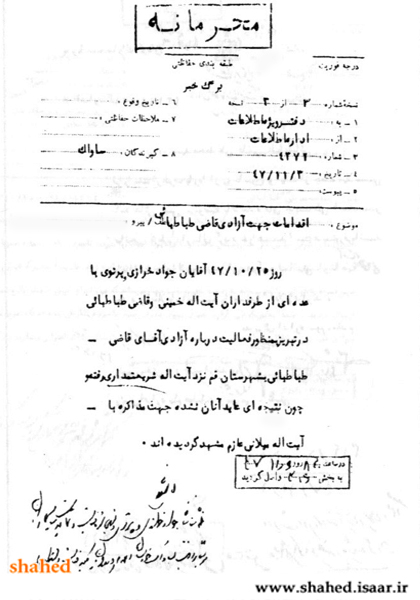 محرمانه
درجه فوریت:
طبقه بندی حفاظتی
برگ خبر
نسخه شماره ۲ از ۳ نسخه
۱ ـ به : دفتر ویژه اطلاعات
۲ ـ از : اداره اطلاعات
۳ ـ شماره : ۴۳۷۹
۴ ـ تاریخ : ۴۷/۱۱/۳
۵ ـ پیوست :
۶ ـ تاریخ وقوع :
۷ ـ ملاحظات حفاظتی :
۸ ـ گیرندگان : ساواک
موضوع : اقدامات جهت آزادی قاضی طباطبائی / پیرو :
روز ۴۷/۱۰/۲۵ آقایان جواد خرازی پرتوی با
عده ای از طرفداران آیت اله خمینی و قاضی طباطبائی
در تبریز بمنظور فعالیت درباره آزادی آقای قاضی ـ
طباطبائی بشهرستان قم نزد آیت اله شریعتمداری رفته و
چون نتیجه ای عاید آنان نشده جهت مذاکره با ـ
آیت اله میلانی عازم مشهد گردیده اند ۰
در ساعت روز
به بخش واصل گردید
shahed
www.shahed.isaar.ir